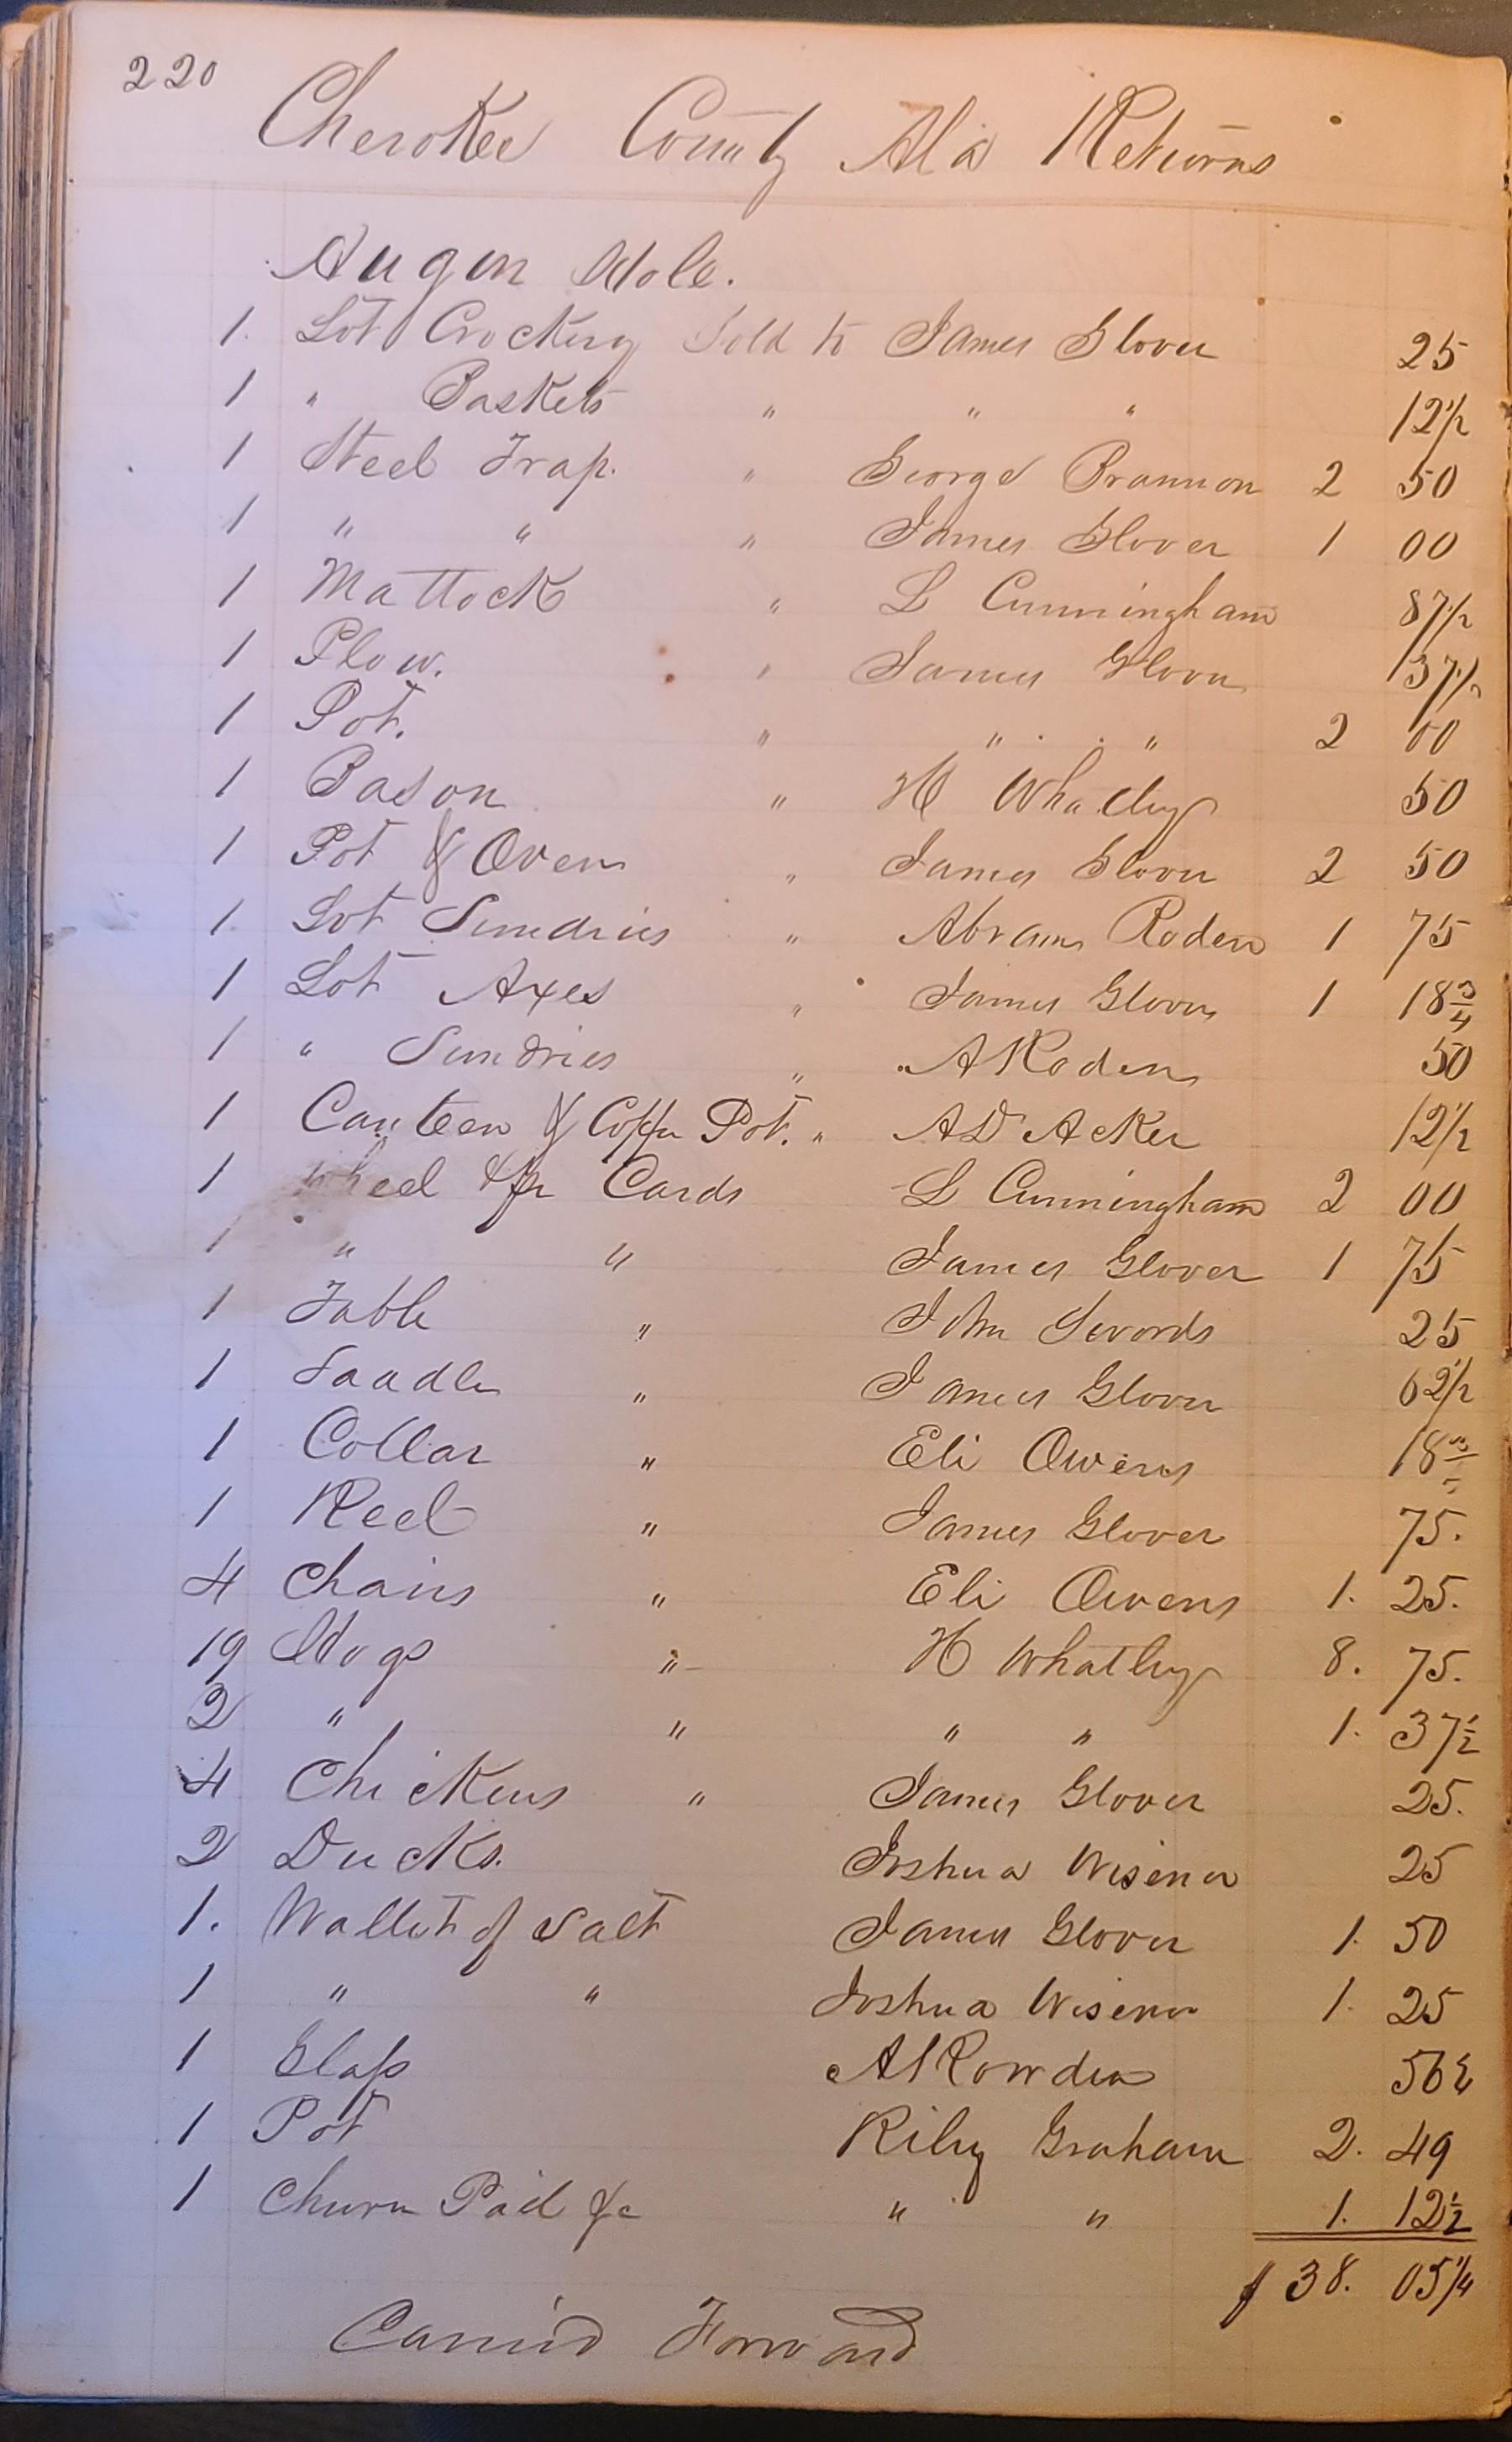 220
Cherokee County Ala Returns
Augon Hole.
1. Lot Crockery Sold to James Glover 25
1 " Baskets " " " 12 1/2
1 Steel Trap. " George Brannon 2 50
1 " " " James Glover 1 00
1 Mattock " L Cunningham 87 1/2
1 Plow. " James Glover 37 1/2
1 Pot. " " " 2 00
1 Bason " H Whatley 50
1 Pot & Oven " James Glover 2 50
1. Lot Sundries " Abram Roden 1 75
1 Lot Axes " James Glover 1 18 3/4
1 " Sundries " A Roden 50
1 Canteen & Coffee Pot. " A D Acker 12 1/2
1 Wheel & pr Cards L Cunningham 2 00
1 " " James Glover 1 75
1 Table " John Swords 25
1 Saadle " James Glover 62 1/2
1 Collar " Eli Owens 18 3/4
1 Reel " James Glover 75.
4 Chairs " Eli Owens 1. 25.
19 Hogs " H Whatley 8. 75.
2 " " " " 1. 37 1/2
4 Chickens " James Glover 25.
2 Ducks. Joshua Wisener 25
1. Wallet of Salt James Glover 1. 50
1 " " Joshua Wisener 1. 25
1 Glass A Rowden 56 1/4
1 Pot Riley Graham 2. 49
1 Churn Pail &c " " 1. 12 1/2
$ 38. 05 1/4
Carried Forward